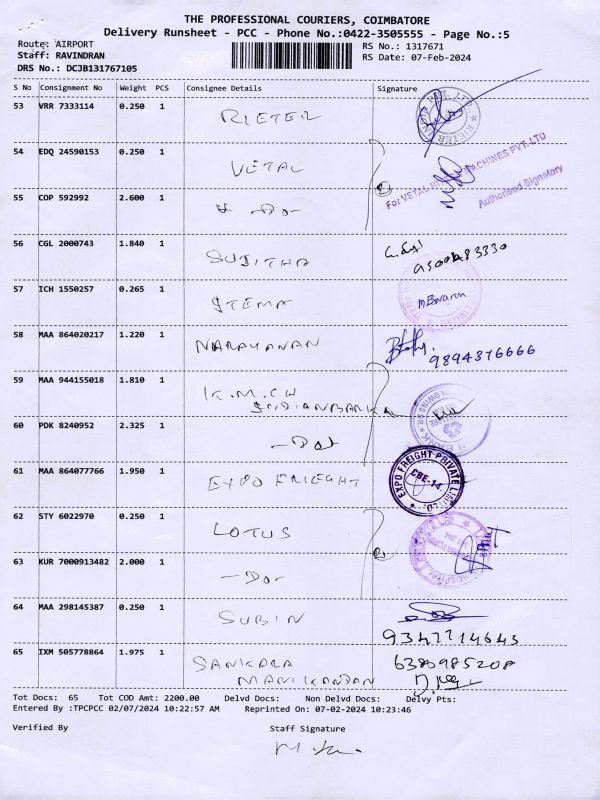 THE PROFESSIONAL COURIERS, COIMBATORE
Delivery Runsheet - PCC - Phone No.:0422-3505555 - Page No.:5
Route: AIRPORT
Staff: RAVINDRAN
DRS No.: DCJB131767105
RS No.: 1317671
RS Date: 07-Feb-2024
S No Consignment No Weight PCS Consignee Details Signature
53 VRR 7333114 0.250 1 RIETER
54 EDQ 24590153 0.250 1 VETAL
For VETAL MACHINES PVT. LTD
Authorised Signatory
55 COP 592992 2.600 1 -Do-
56 CGL 2000743 1.840 1 SUJITHA
57 ICH 1550257 0.265 1 STEMA
58 MAA 864020217 1.220 1 NARAYANAN 9894376666
59 MAA 944155018 1.810 1 K.M.C.H
60 PDK 8240952 2.325 1 -Do-
61 MAA 864077766 1.950 1 EXPO FREIGHT
EXPO FREIGHT PRIVATE LIMITED
CBE-14.
62 STY 6022970 0.250 1 LOTUS
63 KUR 7000913482 2.000 1 -Do-
64 MAA 298145387 0.250 1 SUBIN
65 IXM 505778864 1.975 1 SANKARA
MANIKANDAN
Tot Docs: 65 Tot COD Amt: 2200.00 Delvd Docs: Non Delvd Docs: Delvy Pts:
Entered By :TPCPCC 02/07/2024 10:22:57 AM Reprinted On: 07-02-2024 10:23:46
Verified By Staff Signature